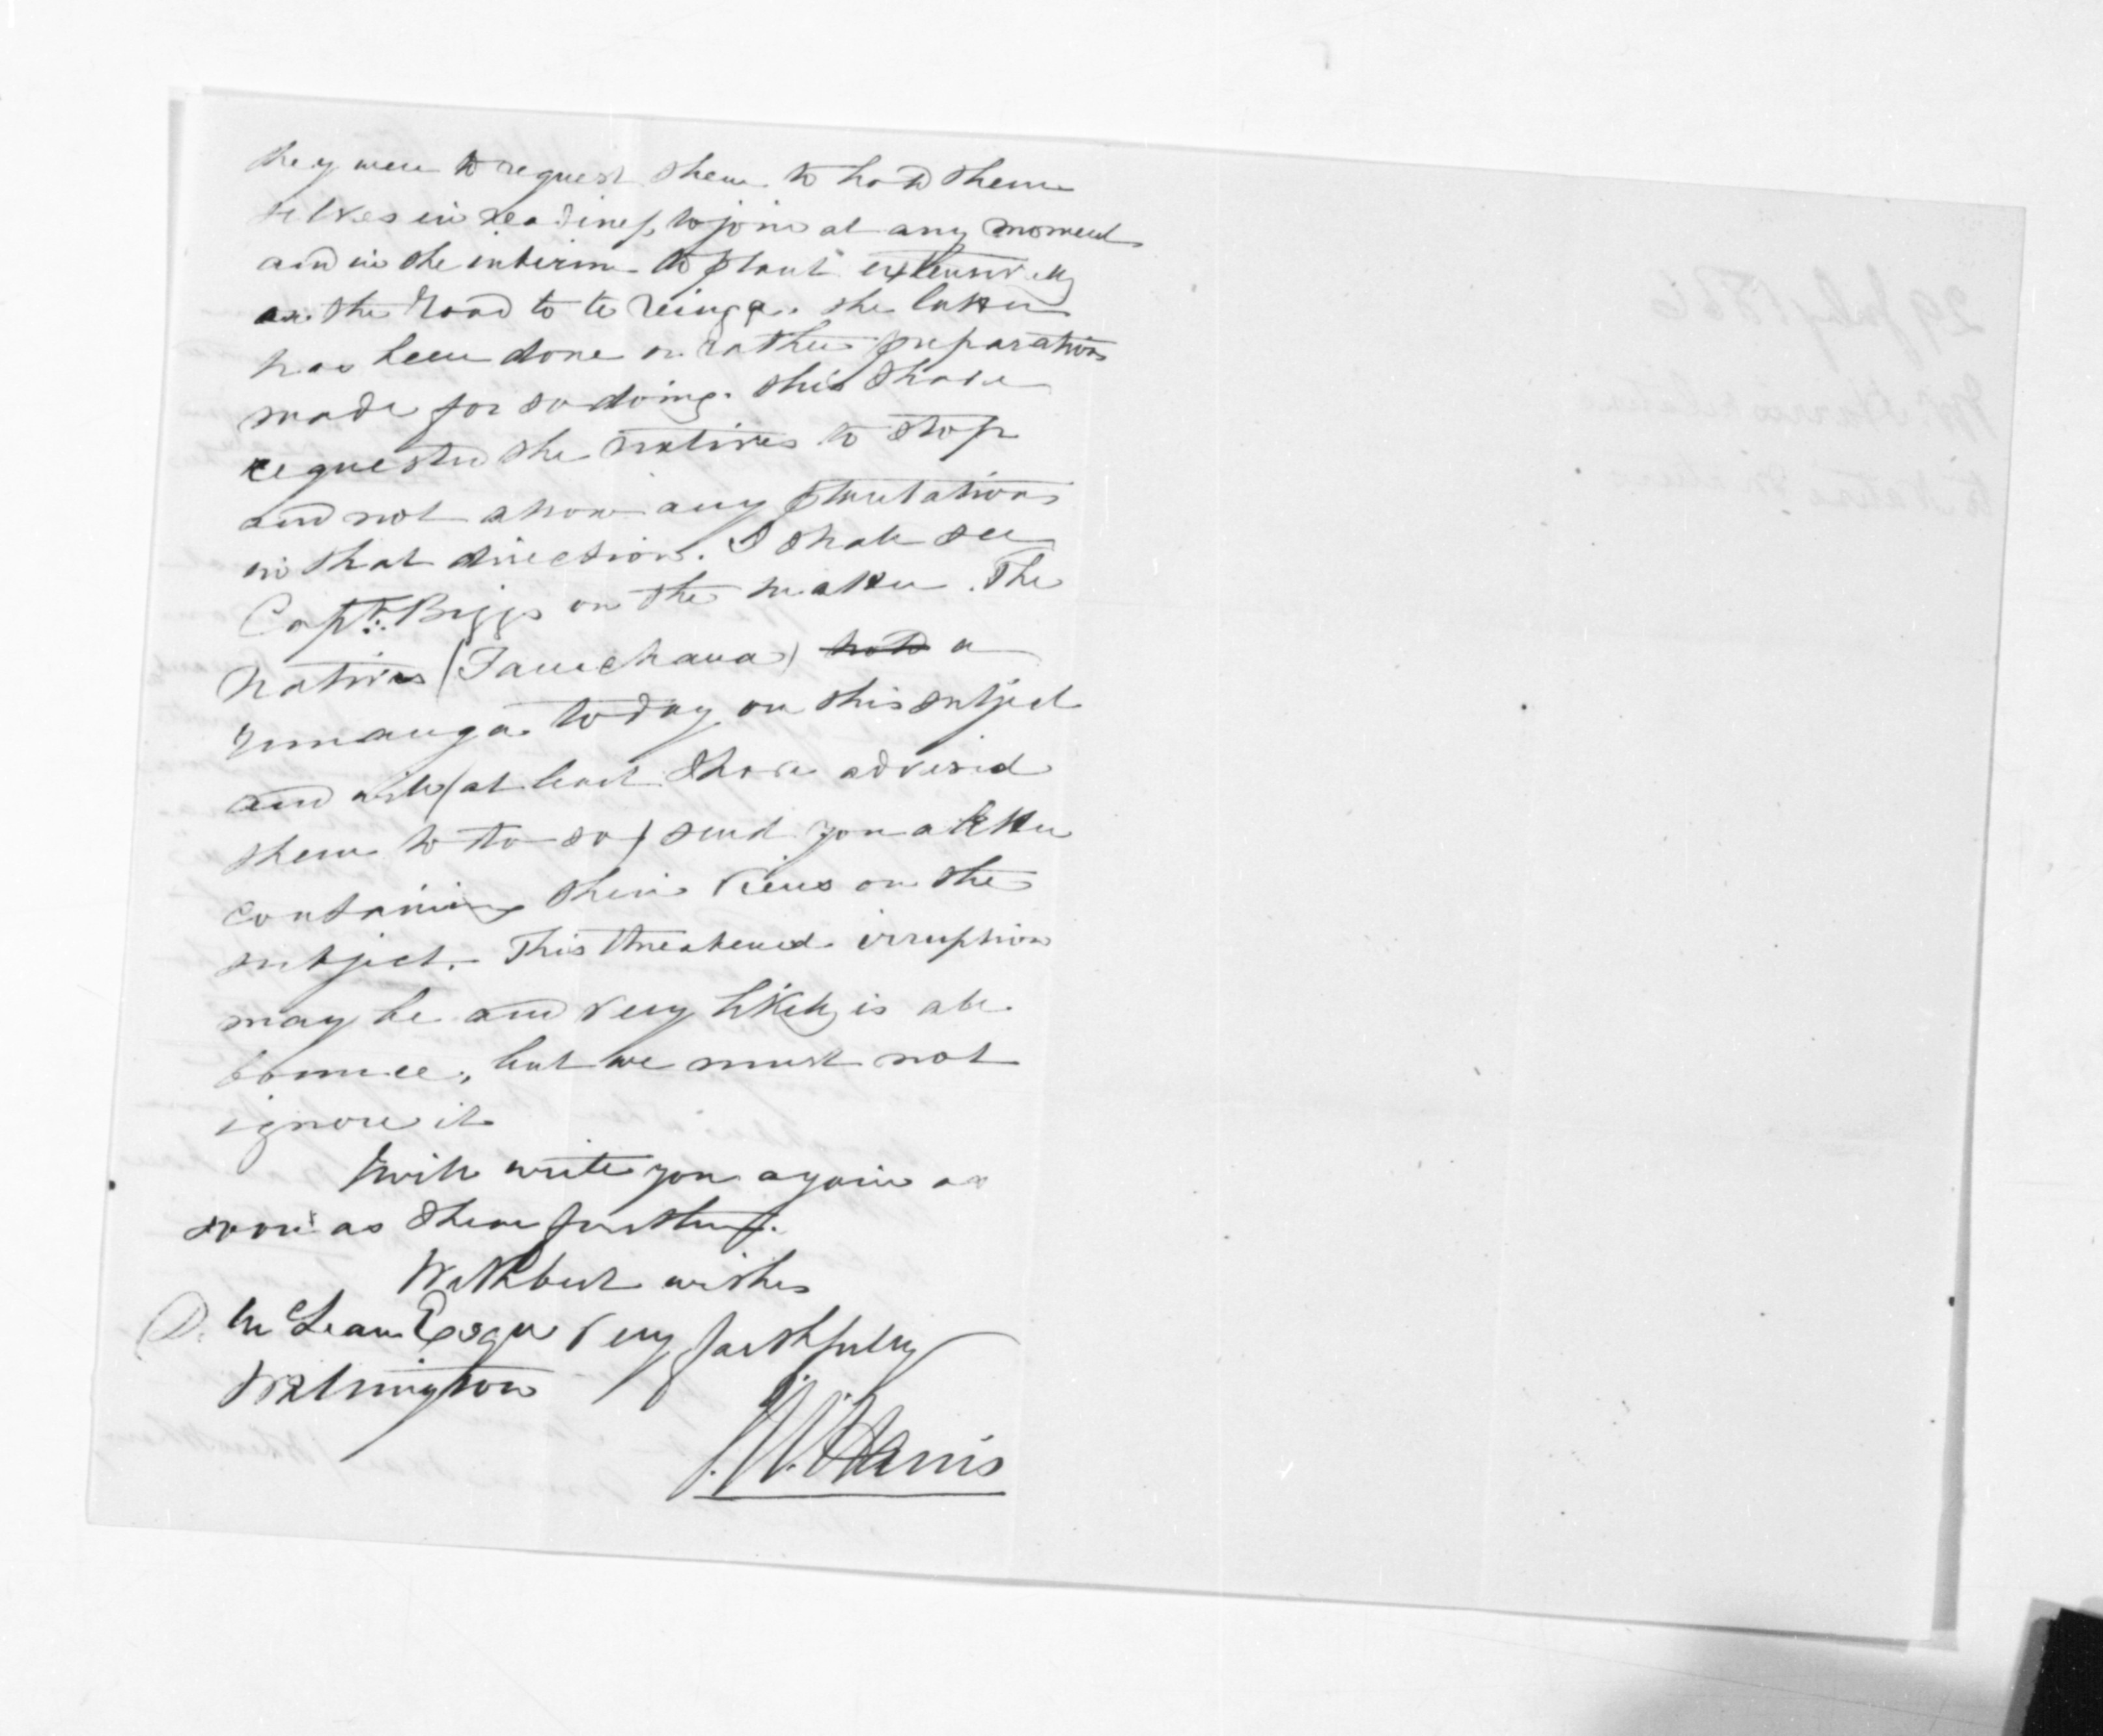 they were to request them to hold them
selves in readiness to join at any moment
and in the interim to plant extensively
on the road to te reinga. the latter
has been done or rather preparations
made for so doing. this I have
requested the natives to stop
and not allow any plantations
in that direction. I shall see
Captn. Biggs on the matter. The
natives (Tauehana) hold a
runanga today on this subject
and will (at least I have advised
them to do so) send you a letter
containing their views on the
subject. This threatened irruption
may be and very likely is all
bounce, but we must not
ignore it
I will write you again as
soon as I hear further.
With best wishes
D. McLean Esqre Very faithfully
Wellington
J. W. Harris
29 July 1866
Mr. Harris relative
to Native Matters